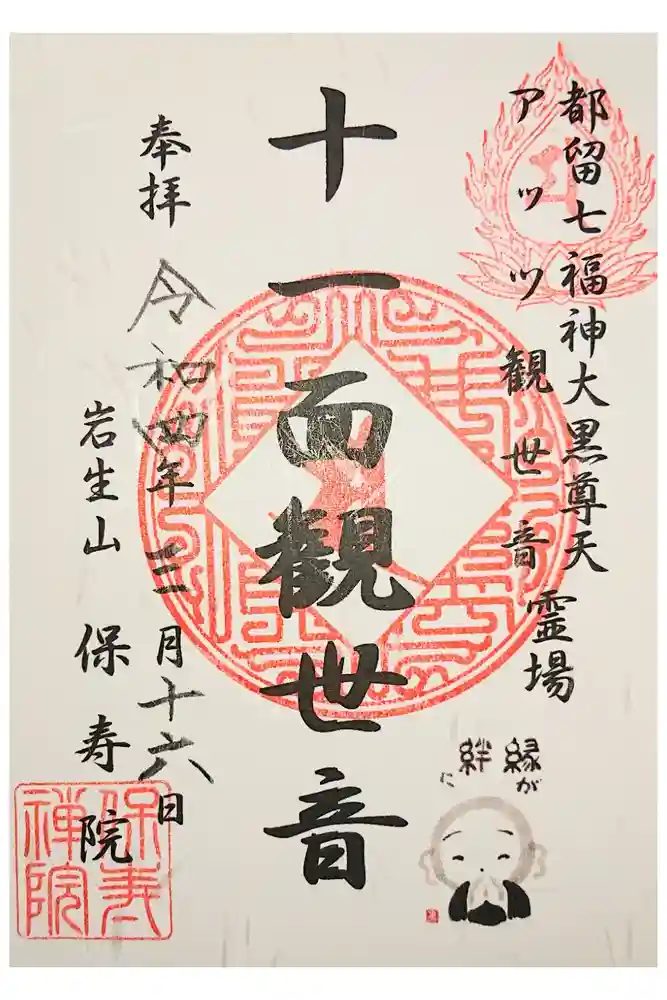 都留七福神大黒尊天
アツツ観世音霊場
十一面觀世音
奉拝
令和四年三月十六日
岩生山 保寿院
縁が
絆に
保寿
禅院